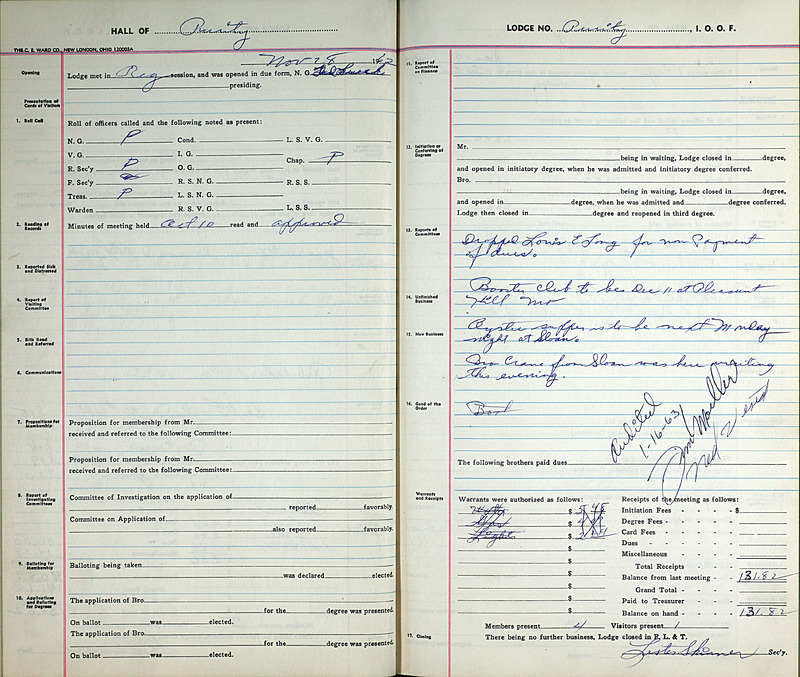 HALL OF Purity
THE C. E. WARD CO., NEW LONDON, OHIO 120005A
Nov 28 1962
Opening
Lodge met in Reg session, and was opened in due form, N. G.
presiding.
Presentation of Cards of Visitors
1. Roll Call
Roll of officers called and the following noted as present:
N. G. P Cond. L. S. V. G.
V. G. I. G. Chap. P
R. Sec'y P O. G.
F. Sec'y R. S. N. G. R. S. S.
Treas. P L. S. N. G.
Warden R. S. V. G. L. S. S.
2. Reading of Records
Minutes of meeting held Oct 10 read and approved
3. Reported Sick and Distressed
4. Report of Visiting Committee
5. Bills Read and Referred
6. Communications
7. Propositions for Membership
Proposition for membership from Mr.
received and referred to the following Committee:
Proposition for membership from Mr.
received and referred to the following Committee:
8. Report of Investigating Committees
Committee of Investigation on the application of
reported favorably.
Committee on Application of
also reported favorably.
9. Balloting for Membership
Balloting being taken
was declared elected.
10. Applications and Balloting for Degrees
The application of Bro.
for the degree was presented.
On ballot was elected.
The application of Bro.
for the degree was presented.
On ballot was elected.
LODGE NO. Purity, I. O. O. F.
11. Report of Committee on Finance
12. Initiation or Conferring of Degrees
Mr.
being in waiting, Lodge closed in degree,
and opened in initiatory degree, when he was admitted and initiatory degree conferred.
Bro.
being in waiting, Lodge closed in degree,
and opened in degree, when he was admitted and degree conferred.
Lodge then closed in degree and reopened in third degree.
13. Reports of Committees
Dropped Louis E Long for non Payment
of dues.
Booster Club to be Dec 11 at Pleasant
14. Unfinished Business
Hill Mo
15. New Business
Oyster supper is to be next Monday
night at Sloan.
Bro Crane from Sloan was here visiting
this evening.
16. Good of the Order
Audited
1-16-63
The following brothers paid dues
Warrants and Receipts
Warrants were authorized as follows: Receipts of the meeting as follows:
Initiation Fees $
$ Degree Fees
Lights $ Card Fees
$ Dues
$ Miscellaneous
$ Total Receipts
$ Balance from last meeting 131.82
$ Grand Total
$ Paid to Treasurer
$ Balance on hand 131.82
Members present 4 Visitors present 1
17. Closing
There being no further business, Lodge closed in F., L. & T.
Lester Skinner Sec'y.